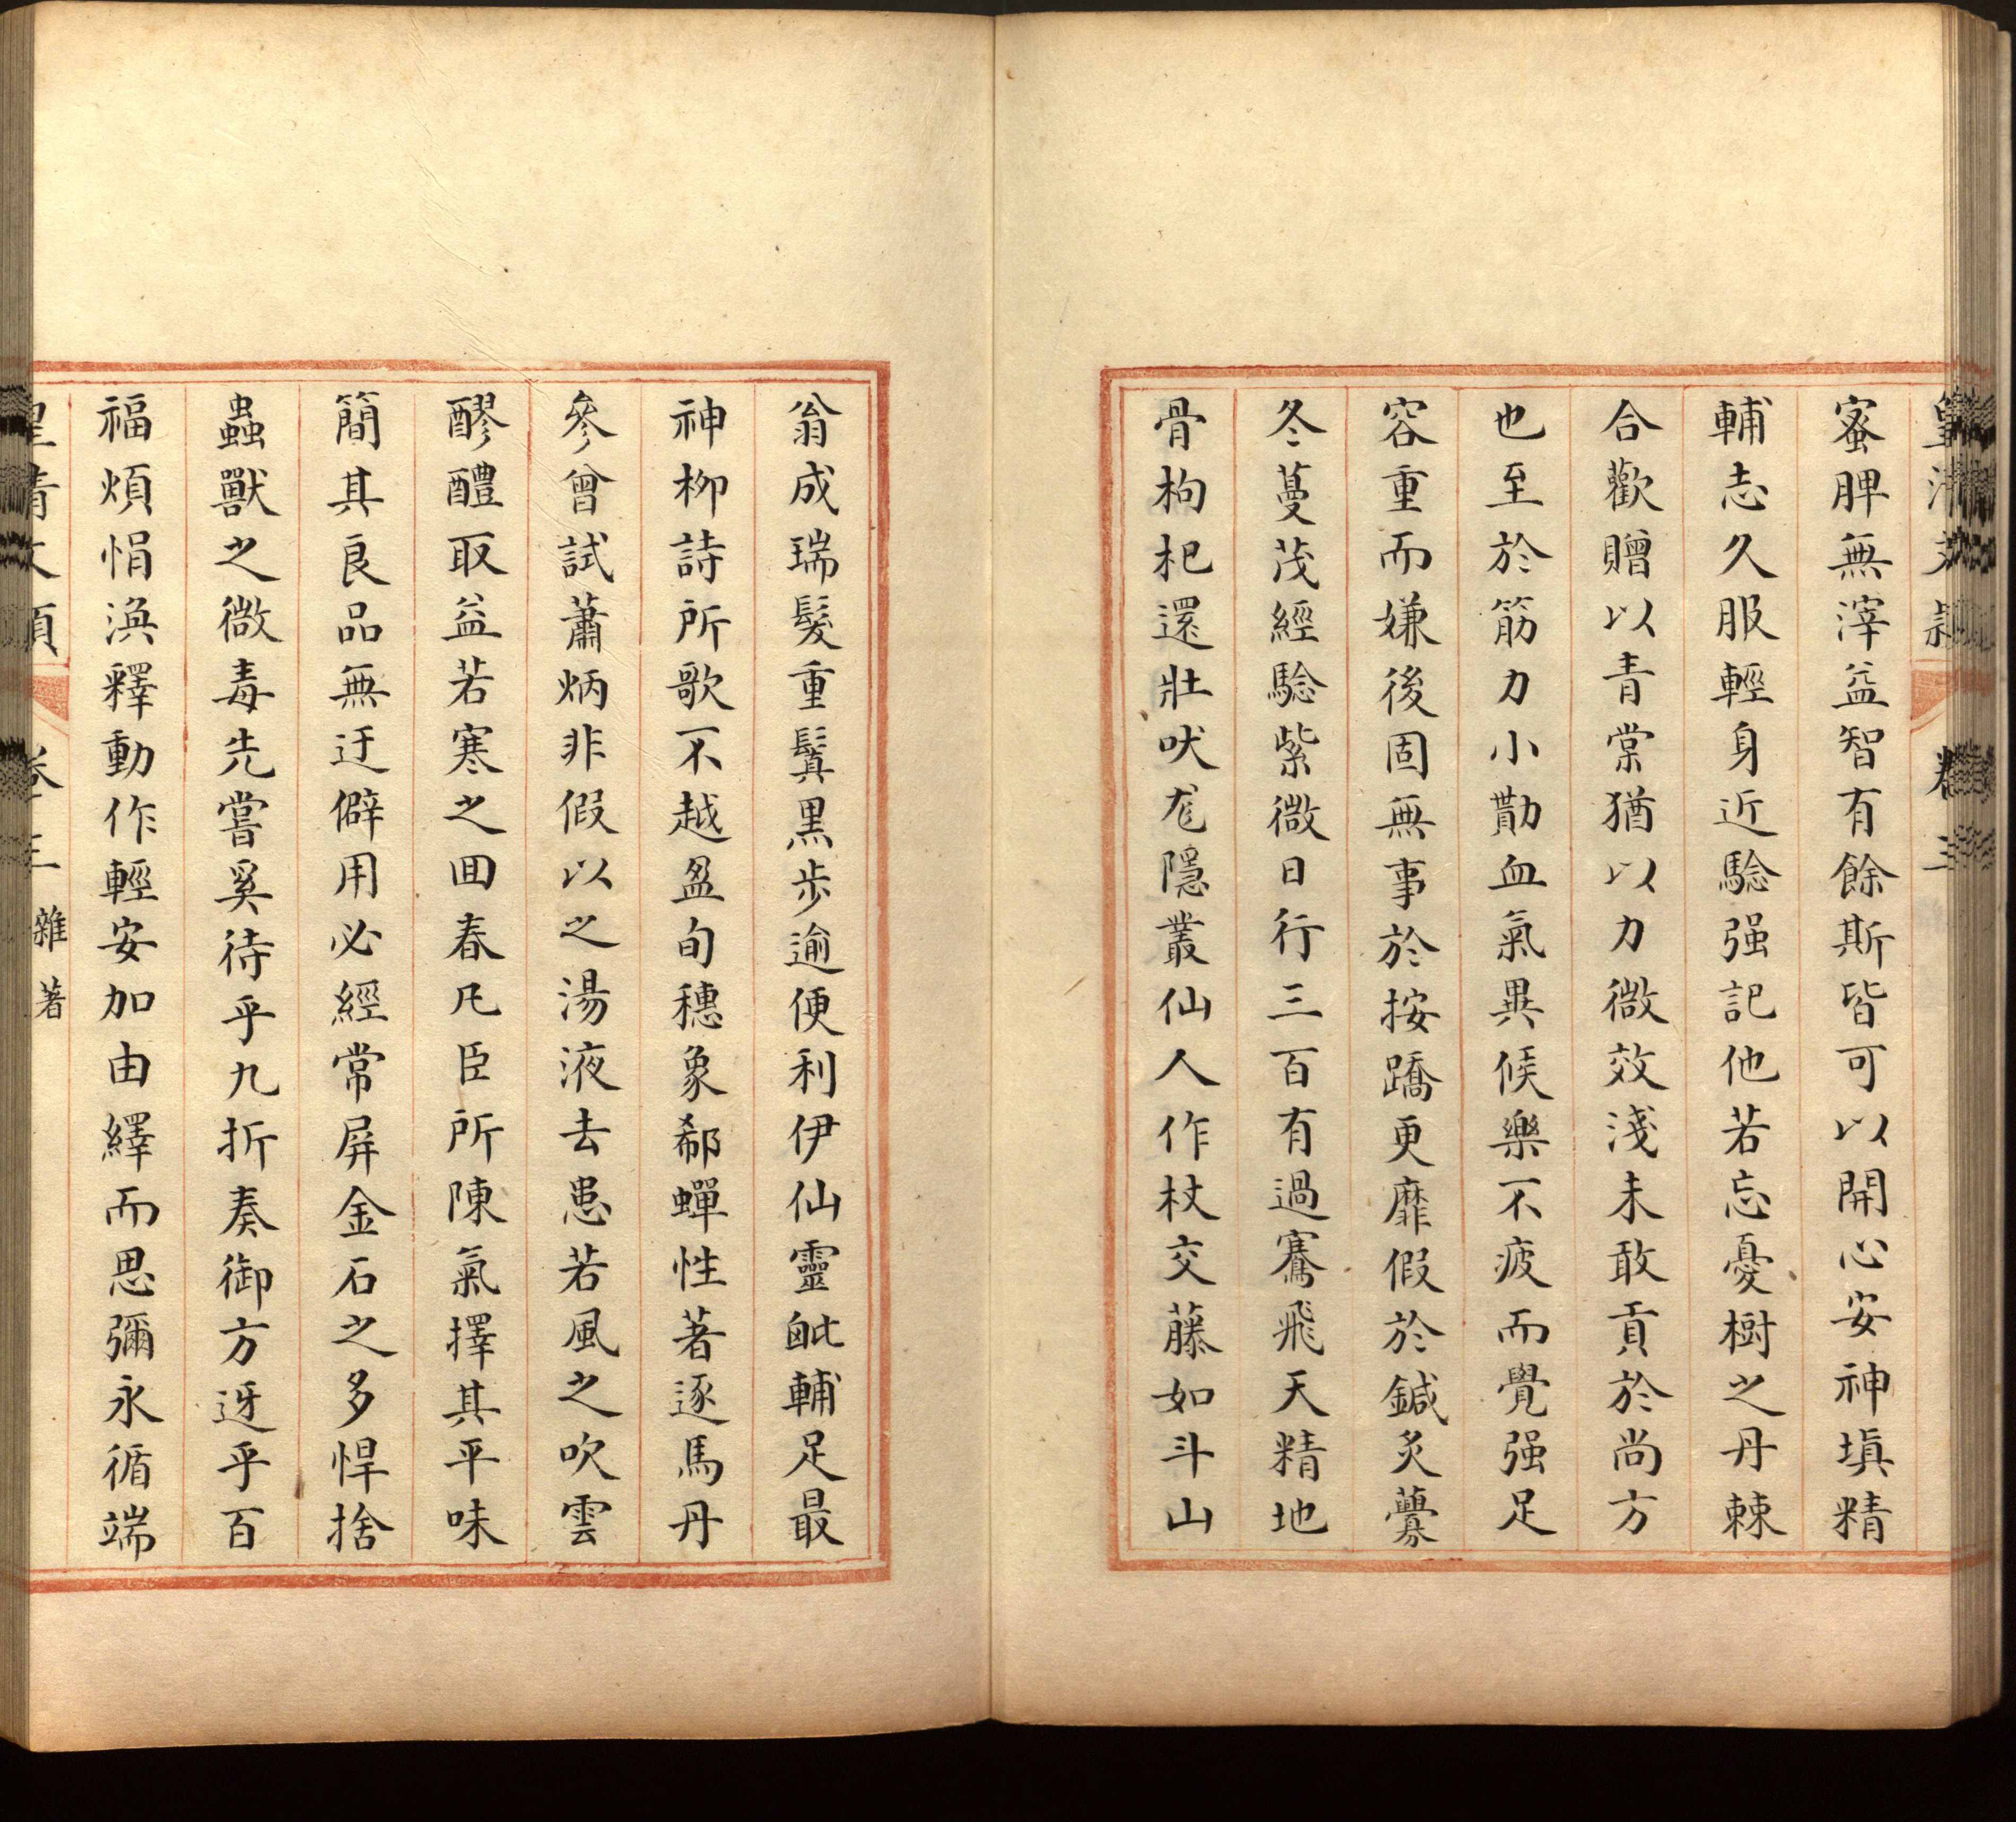 皇清文穎 卷三
蜜脾無滓益智有餘斯皆可以開心安神填精
輔志久服輕身近驗强記他若忘憂樹之丹棘
合歡贈以青棠猶以力微效淺未敢貢於尚方
也至於筋力小勩血氣異候樂不疲而覺强足
容重而嫌後固無事於按蹻更靡假於鍼炙虋
冬蔓茂經驗紫微日行三百有過騫飛天精地
骨枸杞還壯吠尨隱叢仙人作杖交藤如斗山
翁成瑞髮重鬒黒步逾便利伊仙靈毗輔足最
神柳詩所歌不越盈旬穗象郗蟬性著逐馬丹
參曾試蕭炳非假以之湯液去患若風之吹雲
醪醴取益若寒之囬春凡臣所陳氣擇其平味
簡其良品無迂僻用必經常屏金石之多悍捨
蟲獸之微毒先嘗奚待乎九折奏御方迓乎百
福煩悁渙釋動作輕安加由繹而思彌永循端
雜著